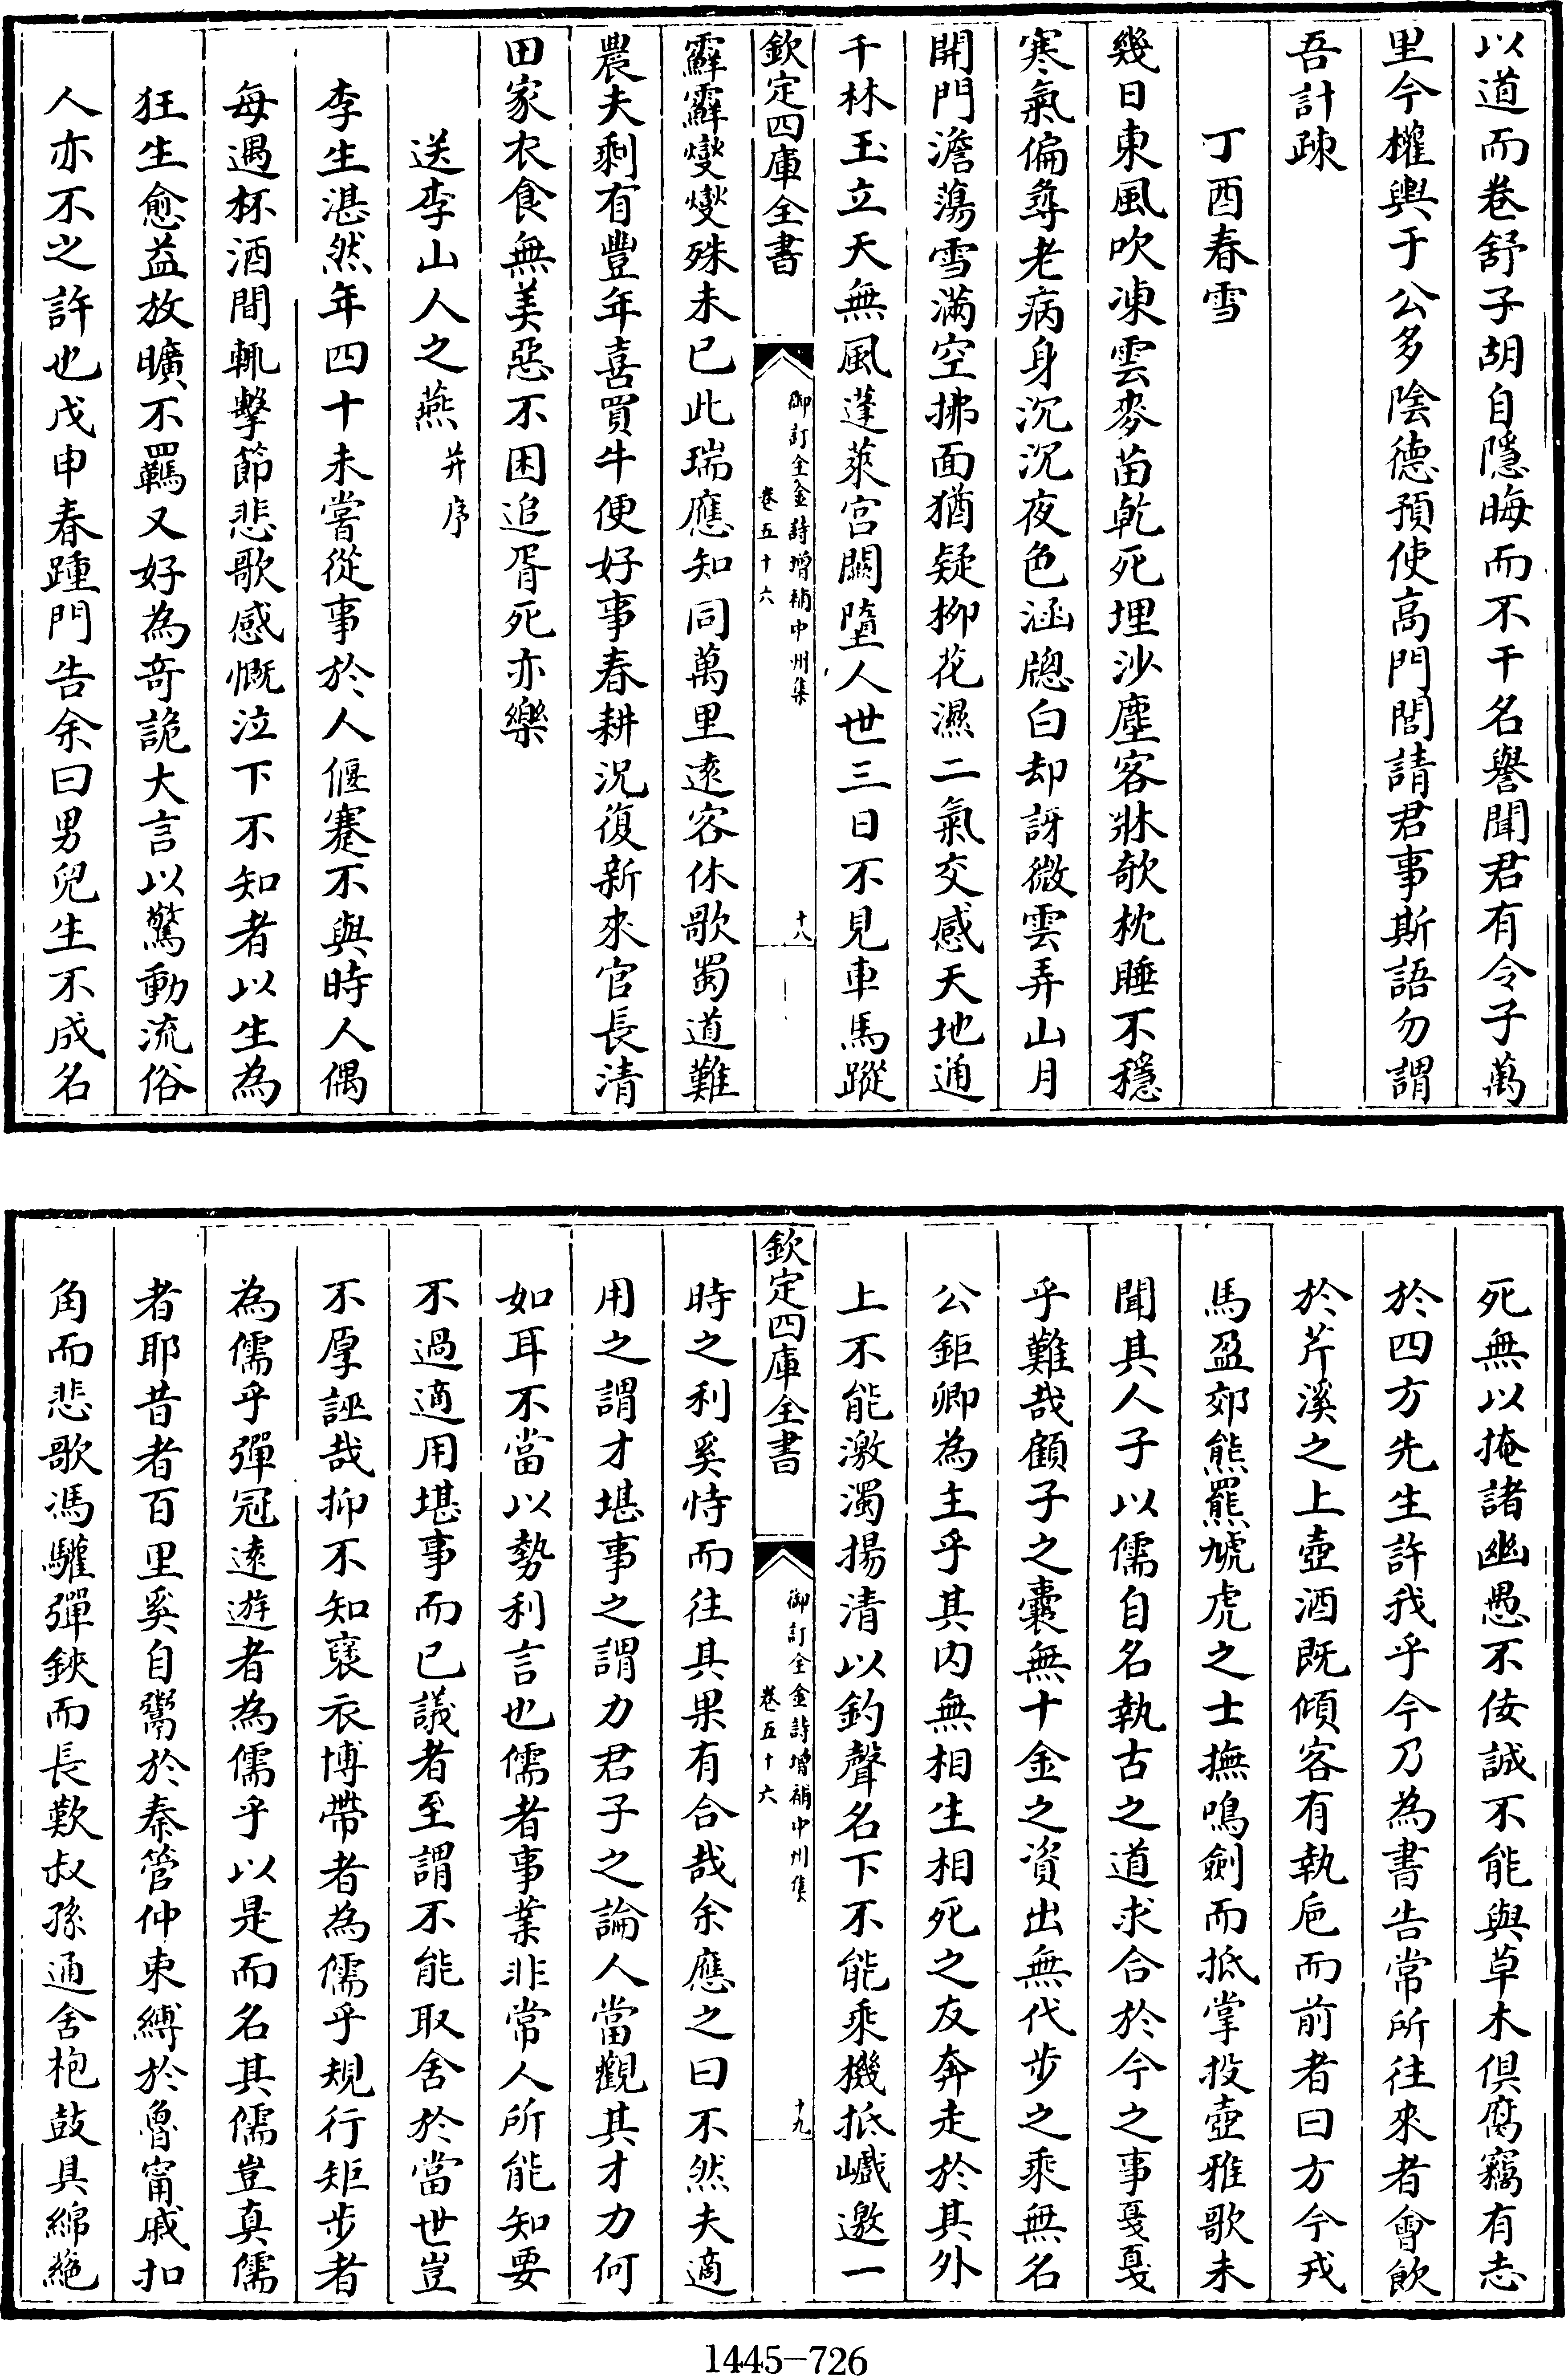 以道而卷舒子胡自隱晦而不干名譽聞君有令子萬
里今權輿于公多陰德預使高門閭請君事斯語勿謂
吾計疎
丁酉春雪
幾日東風吹凍雲麥苗乾死埋沙塵客牀欹枕睡不穩
寒氣偏尋老病身沉沉夜色涵牕白却訝微雲弄山月
開門澹蕩雪滿空拂面猶疑柳花濕二氣交感天地通
千林玉立天無風蓬萊宮闕墮人世三日不見車馬蹤
欽定四庫全書
御訂全金詩增補中州集
卷五十六
十八
霹霹燮燮殊未已此瑞應知同萬里遠客休歌蜀道難
農夫剩有豐年喜買牛便好事春耕況復新來官長清
田家衣食無美惡不困追胥死亦樂
送李山人之燕 并序
李生湛然年四十未嘗從事於人偃蹇不與時人偶
每遇杯酒間輒擊節悲歌感慨泣下不知者以生為
狂生愈益放曠不羈又好為奇詭大言以驚動流俗
人亦不之許也戊申春踵門告余曰男兒生不成名
死無以掩諸幽愚不佞誠不能與草木俱腐竊有志
於四方先生許我乎今乃為書告常所往來者會飲
於芹溪之上壺酒既傾客有執巵而前者曰方今戎
馬盈郊熊羆虓虎之士撫鳴劍而抵掌投壺雅歌未
聞其人子以儒自名執古之道求合於今之事戞戞
乎難哉顧子之囊無十金之資出無代步之乘無名
公鉅卿為主乎其內無相生相死之友奔走於其外
上不能激濁揚清以釣聲名下不能乘機抵巇邀一
欽定四庫全書
御訂全金詩增補中州集
卷五十六
十九
時之利奚恃而往其果有合哉余應之曰不然夫適
用之謂才堪事之謂力君子之論人當觀其才力何
如耳不當以勢利言也儒者事業非常人所能知要
不過適用堪事而已議者至謂不能取舍於當世豈
不厚誣哉抑不知褒衣博帶者為儒乎規行矩步者
為儒乎彈冠遠遊者為儒乎以是而名其儒豈真儒
者耶昔者百里奚自鬻於秦管仲束縛於魯甯戚扣
角而悲歌馮驩彈鋏而長歎叔孫通舍枹鼓具綿蕝
1445-726